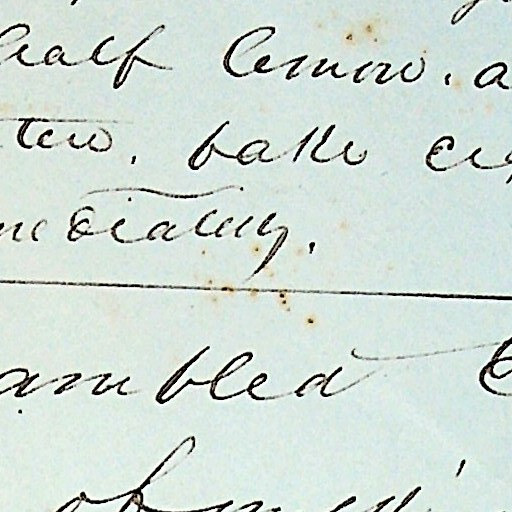 half lemon. a
ten. bake
mediately.
ambled
of